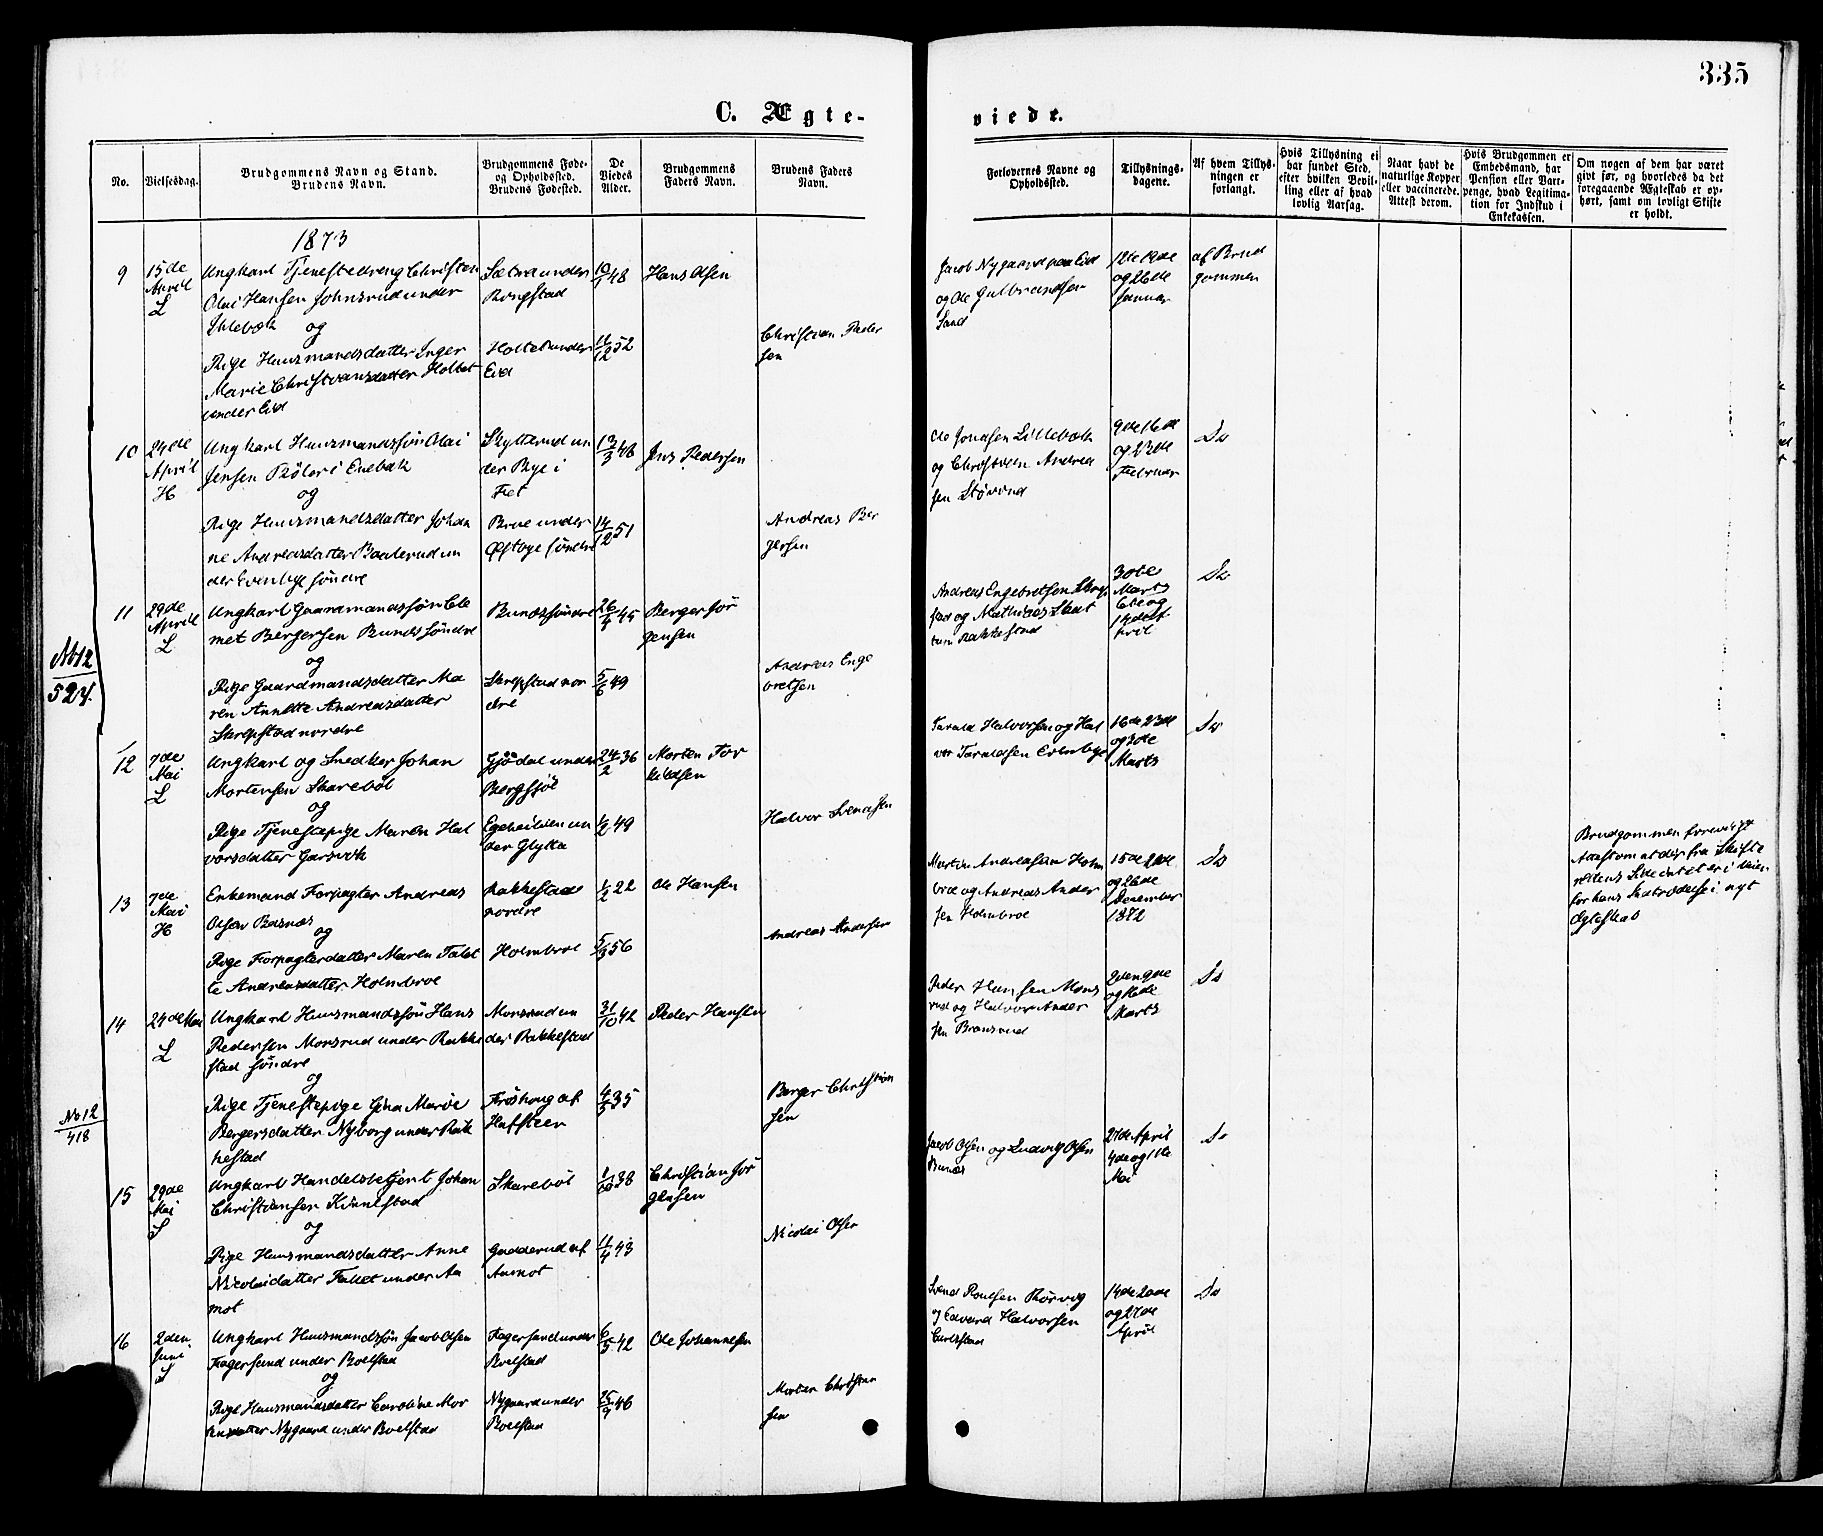 335
C. Ægte-
viede.
No.
Vielsesdag.
Brudgommens Navn og Stand.
Brudens Navn.
Brudgommens Føde-
og Opholdssted.
Brudens Fødested.
De
Viedes
Alder.
Brudgommens
Faders Navn.
Brudens Faders
Navn.
Forlovernes Navne og
Opholdssted.
Tillysnings-
dagene.
Af hvem Tillys-
ningen er
forlangt.
Hvis Tillysning ei
har fundet Sted,
efter hvilken Bevil-
ling eller af hvad
lovlig Aarsag.
Naar havt de
naturlige Kopper
eller vaccinerede.
Attest derom.
Hvis Brudgommen er
Embedsmand, har
Pension eller Vart-
penge, hvad Legitima-
tion for Indskud i
Enkekassen.
Om nogen af dem har været
givt før, og hvorledes da det
foregaaende Ægteskab er op-
hørt, samt om lovligt Skifte
er holdt.
1873
9
15de
April
L
Ungkarl Tjenestedreng Christen
Olai Hansen Johnsrud under
og
Pige Huusmandsdatter Inger
Marie Christiansdatter Holtet
under Eid
Sætra under
Bongstad
Holtet under
Eid
48
11/12 52
Hans Olsen
Christian Peder
sen
Jacob Nygaard paa Eid
og Ole Gulbrandsen
Sand
12te 19de
og 26de
Januar
af Brud
gommen
10
24de
April
H
Ungkarl Huusmandssøn Olai
Jensen Bøler i Enebak
og
Pige Huusmandsdatter Johan
ne Andreasdatter Baalerud un
der Evenbye søndre
Skytterud un
der Bye i
Fet
Broe under
Østbye søndre
13/3 48
14/12 51
Jens Pedersen
Andreas Ber
gersen
Ole Jonasen Lillebæk
og Christian Andrea
sen
9de 16de
og 23de
Februar
Do
11
29de
April
L
Ungkarl Gaardmandssøn Cle
met Bergersen Bunæs søndre
og
Pige Gaardmandsdatter Ma
ren Annette Andreasdatter
Skrepstad nordre
Bunæs søndre
Skrepstad nor
dre
45
5/6 49
Berger Jør
gensen
Andreas Enge
bretsen
Andreas Engebretsen Skrep
stad og Mathias
Rakkestad
30te
Marts
6te og
14de Ap
ril
Do
No 12
524.
12
7de
Mai
L
Ungkarl og Snedker Johan
Mortensen Skarebøl
og
Pige Tjenestepige Maren Hal
vorsdatter Garsvik
Gjødal under
Bergsjøl
Egeheilien un
der Glytta
24/2 36
1/2 49
Morten Tor
kildsen
Halvor Svendsen
Tarald Halvorsen og Hal
vor Taraldsen Evenbye
16de 23de
og 30te
Marts
Do
13
7de
Mai
H
Enkemand Forpagter Andreas
Olsen Basnæs
og
Pige Forpagterdatter Maren Talet
te Andreasdatter Holmbroe
Rakkestad
nordre
Holmbroe
1/2 22
5/3 56
Ole Hansen
Andreas Andersen
Martin Andreasen Holm
broe og Andreas Ander
sen Holmbroe
15de
og 26de
December
1872
Do
Brudgommen forevigt
Attest om at der fra Skifte
rettens Side intet er i Veien
for hans Indtrædelse i nyt
Ægteskab
14
24de Mai
L
Ungkarl Huusmandssøn Hans
Pedersen Monsrud under Rakke
stad søndre
og
Pige Tjenestepige Gina Marie
Bergersdatter Nyborg under Rak
kestad
Monsrud un
der Rakkestad
Frøshoug af
Hafsteen
31/10 42
4/5 35
Peder Hansen
Berger Christian
sen
Peder Hansen Mons
rud og Halvor Ander
sen
2den 9de
og 16de
Marts
Do
No 12
418
15
29de
Mai
S
Ungkarl Handelsbetjent Johan
Christiansen Kinnestad
og
Pige Huusmandsdatter Anne
Nicolaidatter Fallet under Aa
mot
Skarebøl
Gadderud af
Aamot
1/10 38
11/4 43
Christian Jør
gensen
Nicolai Olsen
Jacob Olsen og Ludvig Olsen
Bunæs
27de April
4de og 11te
Mai
Do
16
2den
Juni
S
Ungkarl Huusmandssøn Jacob Olsen
Fagersand under Boelstad
og
Pige Huusmandsdatter Caroline Mor
tensdatter Nygaard under Boelstad
Fagersand under
Boelstad
Nygaard under
Boelstad
6/5 42
46
Ole Johannesen
Morten Christian
sen
Svend Poulsen Rørvig
og Edvard Halvorsen
Carlstad
14de 20de
og 27de
April
Do